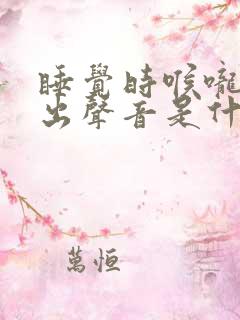 睡覺時喉嚨
出聲音是什
萬恒